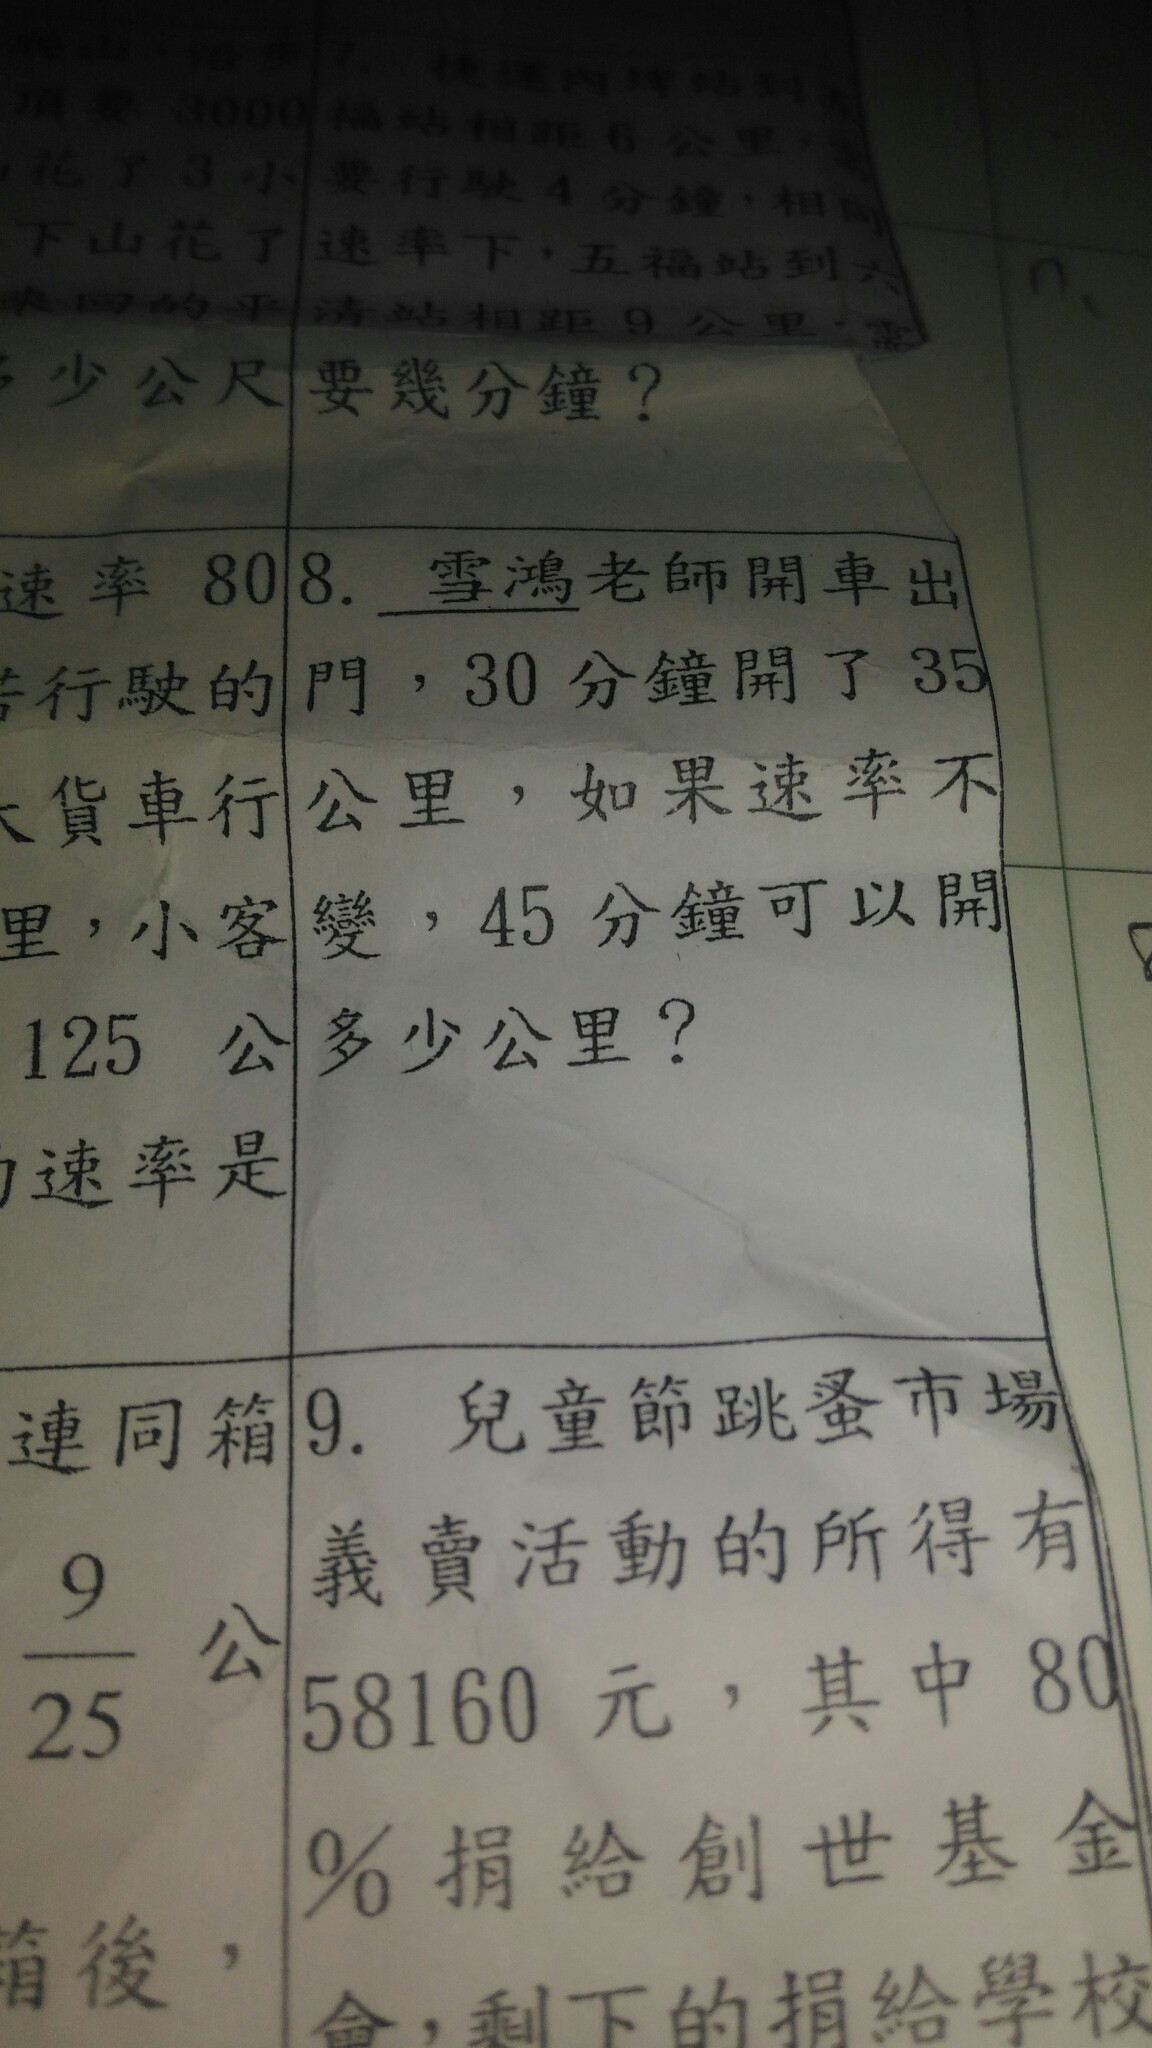 7. 捷運內埤站到五
頂要 3000
福站相距 6 公里，需
花了 3 小
要行駛 4 分鐘，相同
下山花了
速率下，五福站到六
來回的平
清站相距 9 公里，需
多少公尺
要幾分鐘？
速率 80
行駛的
大貨車行
里，小客
125 公
速率是
8. 雪鴻老師開車出
門，30 分鐘開了 35
公里，如果速率不
變，45 分鐘可以開
多少公里？
連同箱
9/25 公
箱後，
9. 兒童節跳蚤市場
義賣活動的所得有
58160 元，其中 80
% 捐給創世基金
會，剩下的捐給學校